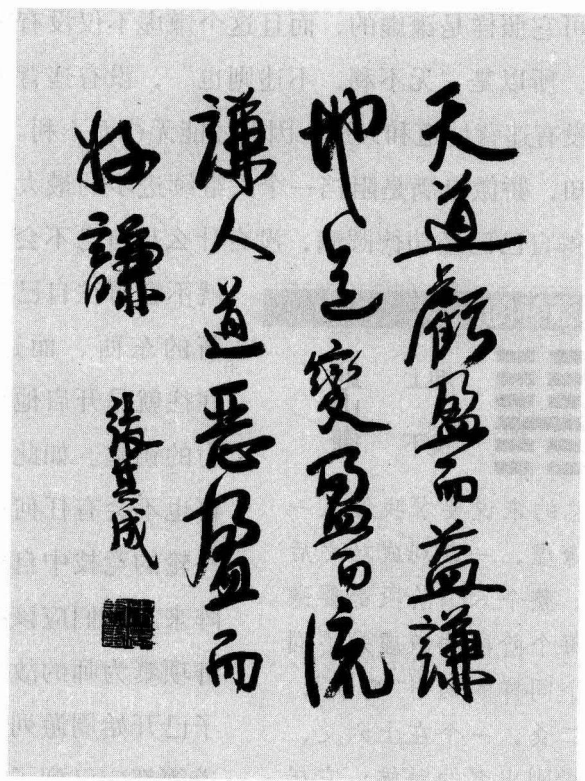 天道虧盈而益謙
地道變盈而流
謙人道惡盈而
好謙
張其成